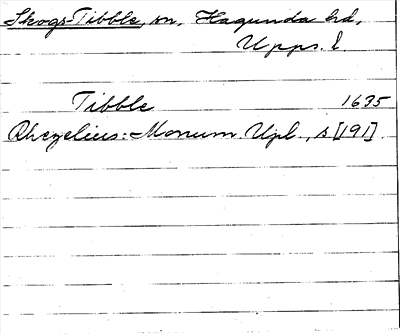 Skogs-Tibble, sn, Hagunda hd,
Upps. l
Tibble 1635
Rhezelius: Monum. Upl., s [191].